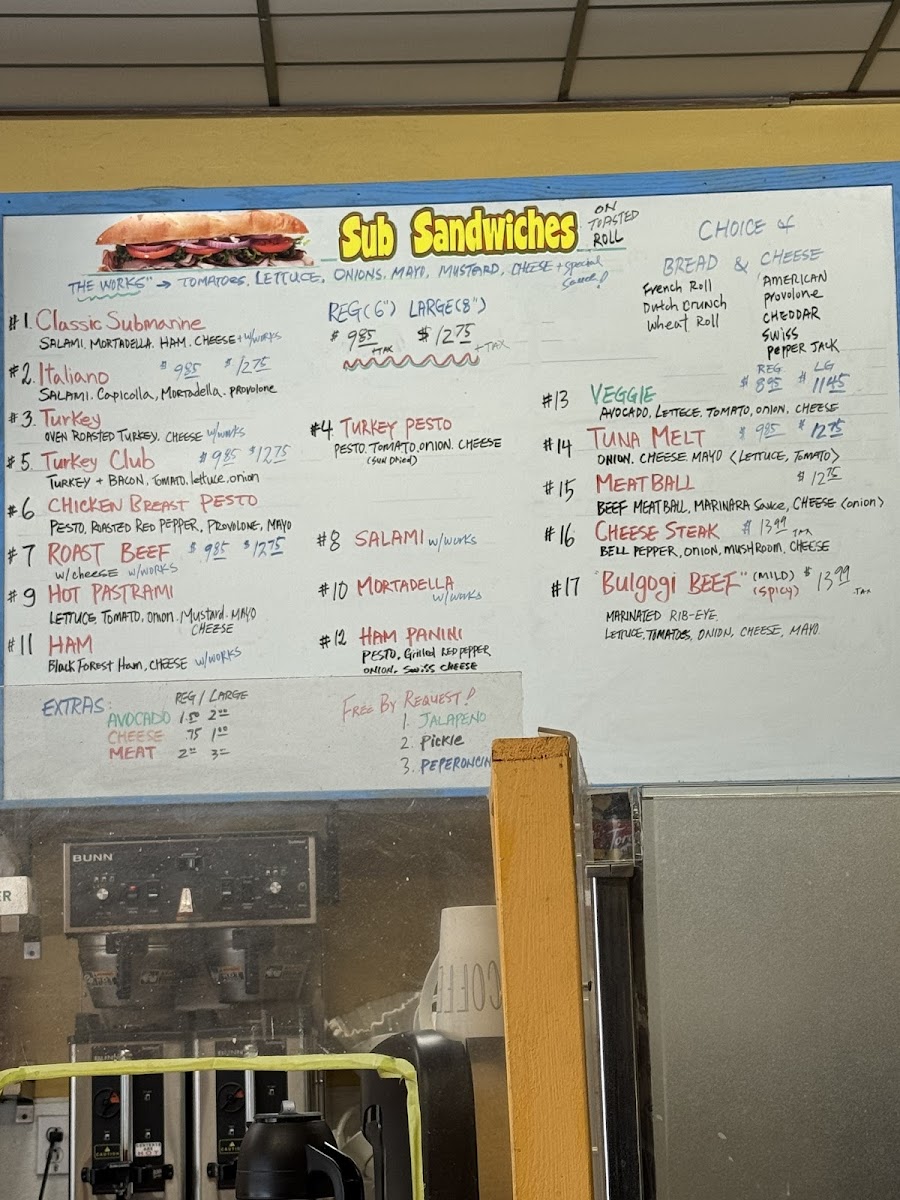 Sub Sandwiches
ON TOASTED ROLL
THE WORKS" → TOMATOES, LETTUCE, ONIONS, MAYO, MUSTARD, CHEESE + special Sauce!
CHOICE of
BREAD & CHEESE
French Roll
Dutch Crunch
Wheat Roll
AMERICAN
Provolone
CHEDDAR
Swiss
PEPPER JACK
REG(6") LARGE(8")
$ 9.85 +TAX $ 12.75 +TAX
#1. Classic Submarine
SALAMI, MORTADELLA, HAM, CHEESE + w/works
#2. Italiano $ 9.85 $ 12.75
SALAMI, Capicolla, Mortadella, PROVOLONE
#3. Turkey
OVEN ROASTED TURKEY, CHEESE w/works
#4. TURKEY PESTO
PESTO, TOMATO, ONION, CHEESE
(Sun Dried)
#5. Turkey Club $ 9.85 $ 12.75
TURKEY + BACON, TOMATO, lettuce, onion
#6 CHICKEN BREAST PESTO
PESTO, ROASTED RED PEPPER, PROVOLONE, MAYO
#7 ROAST BEEF $ 9.85 $ 12.75
w/cheese w/works
#8 SALAMI w/works
#9 HOT PASTRAMI
LETTUCE, TOMATO, onion, Mustard, MAYO
CHEESE
#10 MORTADELLA
w/works
#11 HAM
Black Forest Ham, CHEESE w/works
#12 HAM PANINI
PESTO, Grilled RED PEPPER
ONION, SWISS CHEESE
REG LG
#13 VEGGIE $ 8.95 $ 11.45
AVOCADO, LETTECE, TOMATO, ONION, CHEESE
#14 TUNA MELT $ 9.85 $ 12.75
ONION, CHEESE MAYO <LETTUCE, TOMATO>
#15 MEATBALL $ 12.75
BEEF MEATBALL, MARINARA Sauce, CHEESE <onion>
#16 CHEESE STEAK $ 13.99 TAX
BELL PEPPER, ONION, MUSHROOM, CHEESE
#17 "Bulgogi BEEF" (MILD) (SPICY) $ 13.99 TAX
MARINATED RIB-EYE,
LETTUCE, TOMATOES, ONION, CHEESE, MAYO
EXTRAS: REG / LARGE
AVOCADO 1.50 2.00
CHEESE .75 1.00
MEAT 2.00 3.00
FREE BY REQUEST!
1. JALAPENO
2. Pickle
3. PEPERONCIN
BUNN
ER
COFFE
CAUTION
CAUTION